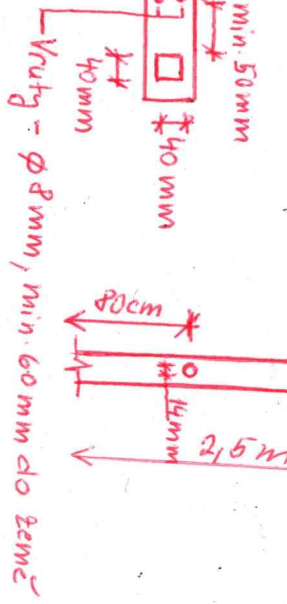 min. 50mm
40mm
40mm
Vruty - φ 8mm, min. 60mm do země
80cm
14mm
2,5m